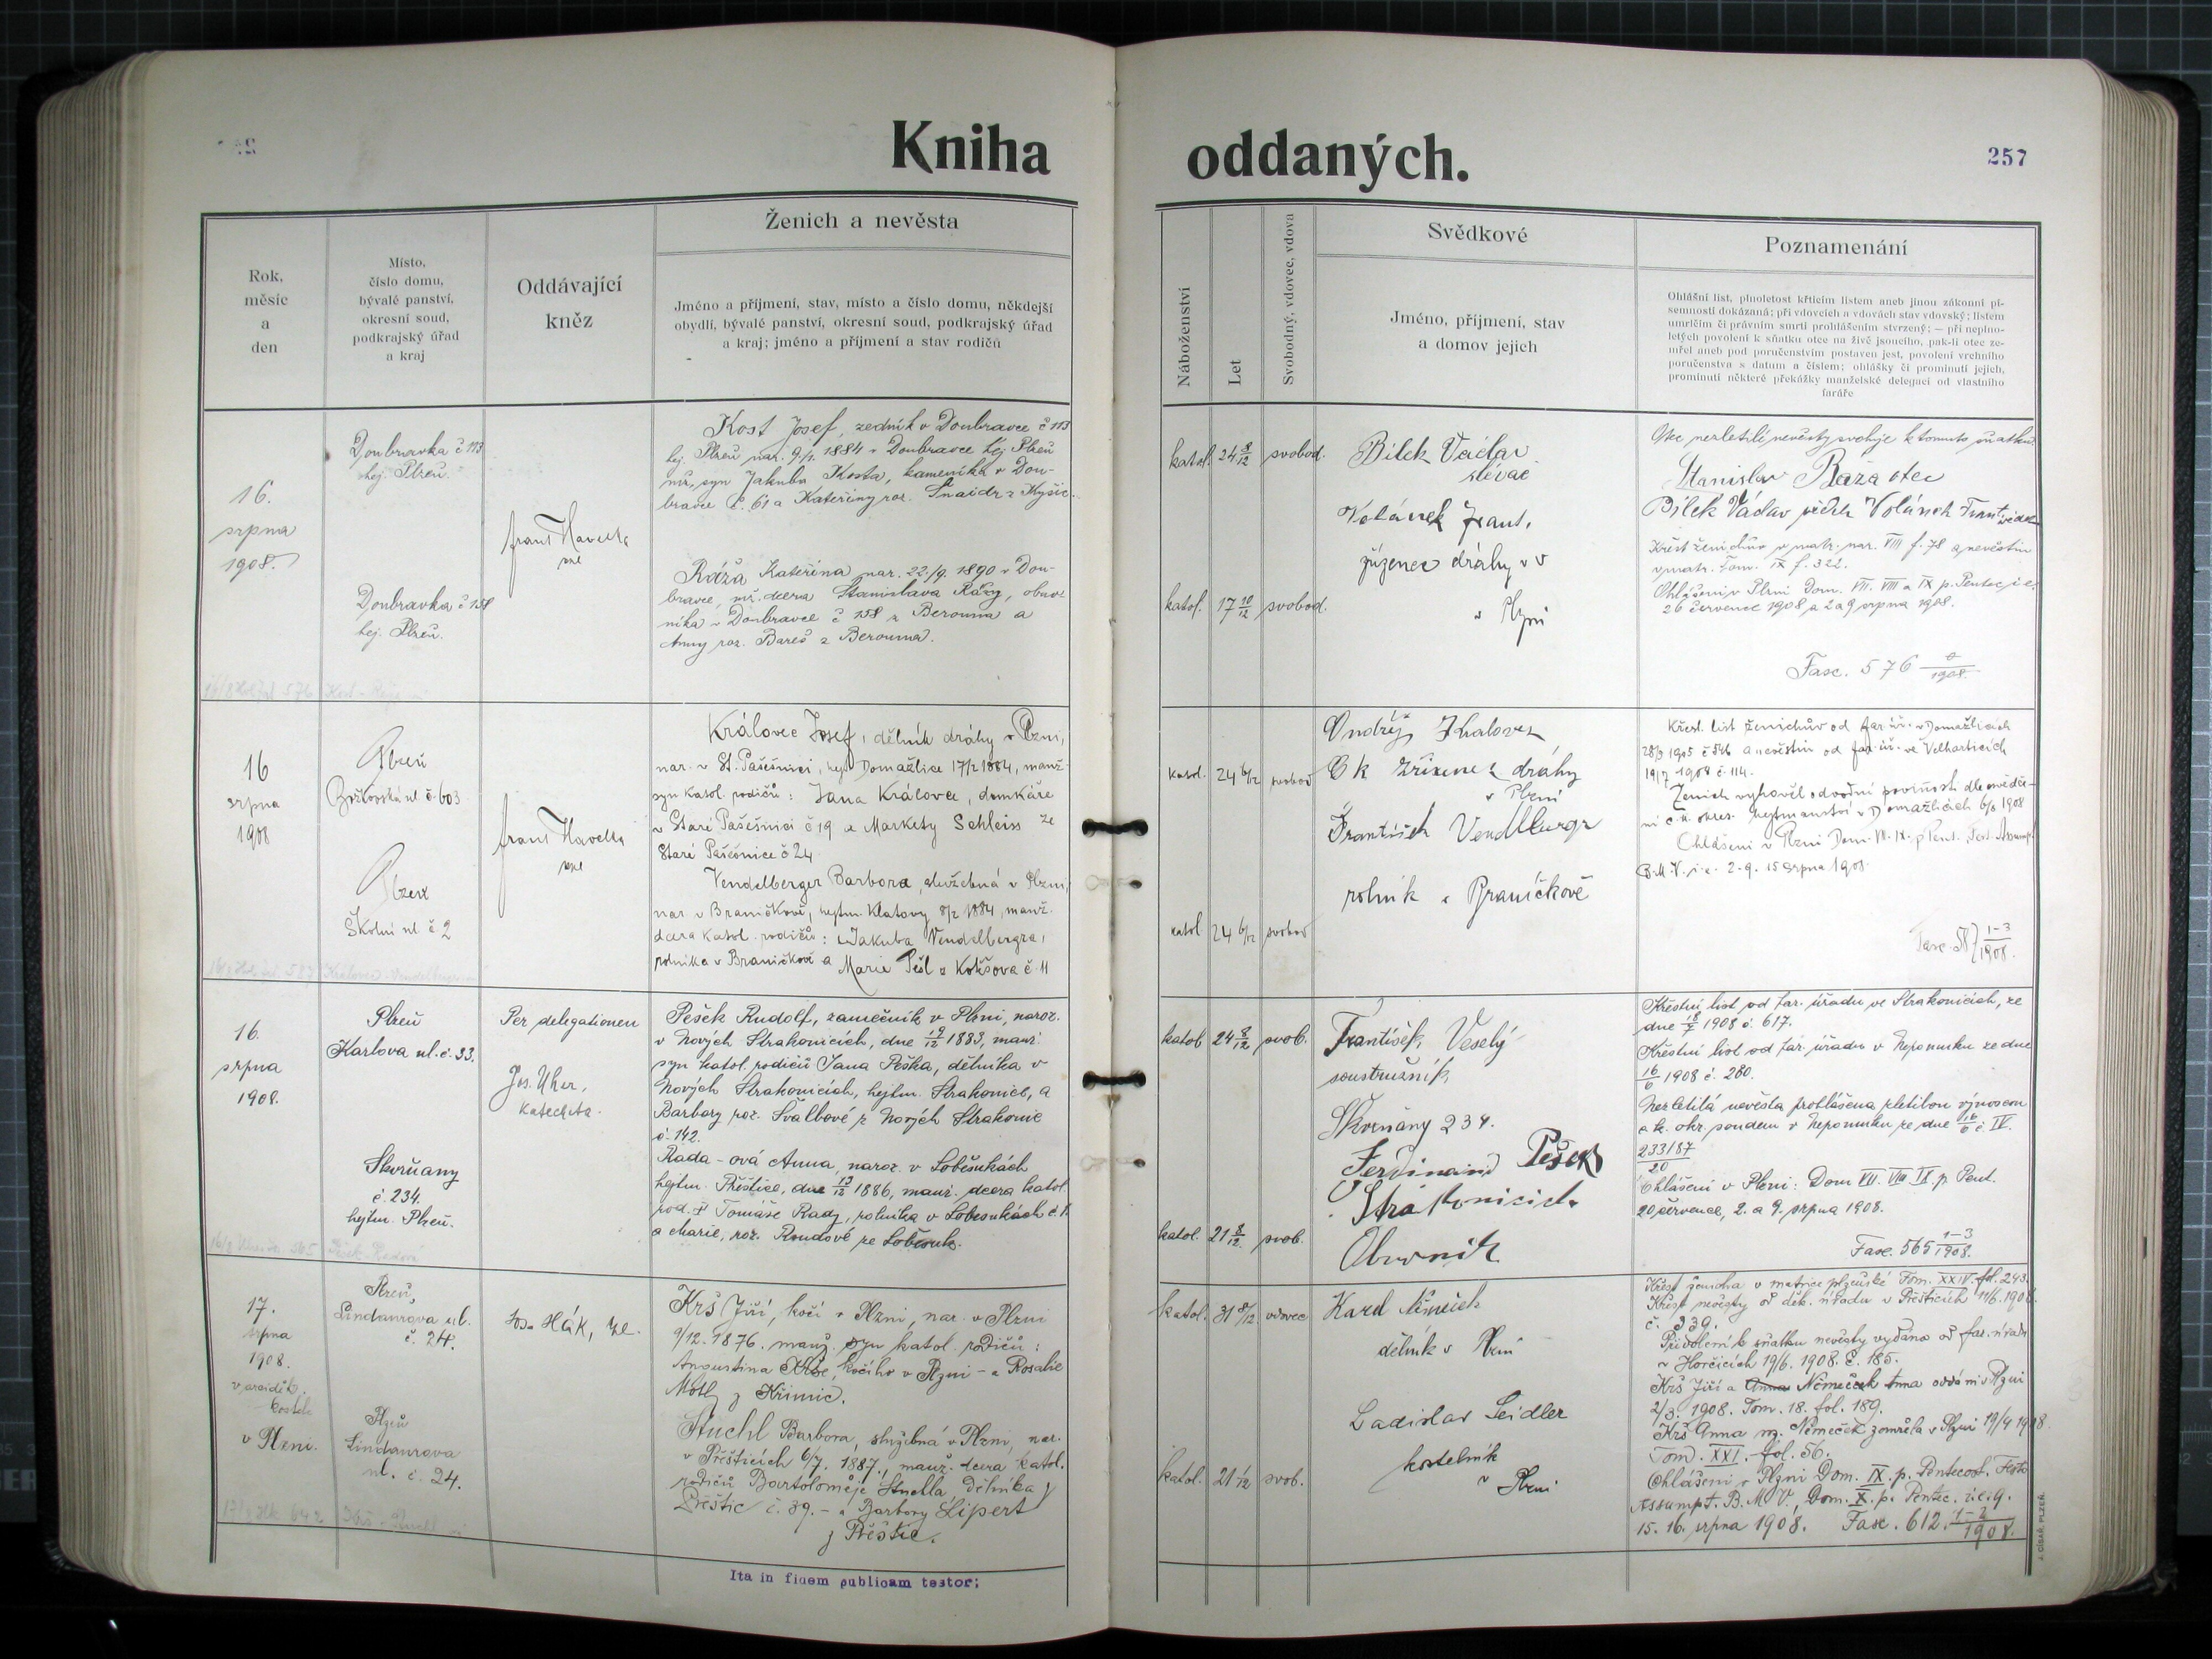 Kniha
oddaných.
257
Rok,
měsíc
a
den
Místo,
číslo domu,
bývalé panství,
okresní soud,
podkrajský úřad
a kraj
Oddávající
kněz
Ženich a nevěsta
Jméno a příjmení, stav, místo a číslo domu, někdejší
obydlí, bývalé panství, okresní soud, podkrajský úřad
a kraj; jméno a příjmení a stav rodičů
Náboženství
Let
Svobodný, vdovec, vdova
Svědkové
Jméno, příjmení, stav
a domov jejich
Poznamenání
Ohlášní list, plnoletost křticím listem aneb jinou zákonní pí-
semností dokázaná; při vdovcích a vdovách stav vdovský; listem
umrlčím či právním smrti prohlášením stvrzený; — při neplno-
letých povolení k sňatku otce na živě jsoucího, pak-li otec ze-
mřel aneb pod poručenstvím postaven jest, povolení vrchního
poručenstva s datum a číslem; ohlášky či prominutí jejich,
prominutí některé překážky manželské delegací od vlastního
faráře
16.
srpna
1908.
Doubravka č 113
hej. Plzeň.
Doubravka č 158
hej. Plzeň.
Frant Havelka
Kost Josef, zedník v Doubravce č 113
hej. Plzeň nar. 9/1. 1884 v Doubravce hej Plzeň
mž. syn Jakuba Kosta, kameníka v Dou-
bravce č. 61 a Kateřiny roz. Šnaidr z Kyšic.
Ráža Kateřina nar. 22./9. 1890 v Dou-
bravce, mž. dcera Stanislava Ráži, obuv-
níka v Doubravce č 158 z Berouna a
Anny roz. Bareš z Berouna.
katol. 24 8/12 svobod.
katol. 17 10/12 svobod.
Bílek Václav
slévač
Volánek Frant.
zřízenec dráhy v
v Plzni
Otec nezletilé nevěsty svoluje k tomuto sňatku.
Stanislav Ráža otec
Bílek Václav svědek Volánek František
Křest ženichův v matr. nar. VIII f. 78 a nevěstin
v matr. Tom. IX f. 322.
Ohlášeni v Plzni Dom. VII. VIII a IX p. Pentec. i. e.
26 července 1908 a 2 a 9 srpna 1908.
Fasc. 576 /1908.
16
srpna
1908
Plzeň
Božkovská ul. č. 603
Plzeň
Školní ul č 2
Frant Havelka
Královec Josef, dělník dráhy v Plzni,
nar. v St. Pašešnici, hejt Domažlice 17/2 1884, manž.
syn katol. rodičů: Jana Královce, domkáře
v Staré Pašešnici č 19 a Markety Schleiss ze
Staré Pašešnice č 24
Vendelberger Barbora, služebná v Plzni,
nar. v Braníčkově, hejtm. Klatovy 8/2 1884, manž.
dcera katol. rodičů: Jakuba Vendelbergra,
rolníka v Braníčkově a Marie Pešl z Kotšova č. 11
katol. 24 6/12 svobod
katol 24 6/12 svobod
Ondřej Kralovec
C k zřizenec dráhy
v Plzni
František Vendlbergr
rolník v Braníčkově
Křest. list ženichův od far. úř. v Domažlicích
28/3 1905 č 546 a nevěstin od far. úř. ve Velharticích
19/7 1908 č. 114.
Ženich vyhověl odvodní povinnosti dle osvědče-
ní c. k. okres. hejtmanství v Domažlicích 6/8 1908
Ohlášeni v Plzni Dom. VIII. IX. p Pent., Fest. Assumpt.
B. M. V. i. e. 2. 9. 15 srpna 1908
Fasc. 587 1-3/1908.
16.
srpna
1908.
Plzeň
Karlova ul. č. 33.
Skvrňany
č. 234.
hejtm. Plzeň.
Per delegationem
Jos. Uher,
katecheta.
Pešek Rudolf, zámečník v Plzni, naroz.
v Nových Strakonicích, dne 19/12 1883, manž.
syn katol. rodičů Jana Peška, dělníka v
Nových Strakonicích, hejtm. Strakonice, a
Barbory roz. Švalbové z Nových Strakonic
č. 142.
Rada-ová Anna, naroz. v Loběsukách
hejtm. Přeštice, dne 13/12 1886, manž. dcera katol.
rod. Tomáše Rady, rolníka v Loběsukách č. 1.
a Marie, roz. Roudové ze Loběsuk.
katol 24 8/12 svob.
katol. 21 8/12. svob.
František Veselý
soustružník
Skvrňany 234.
Ferdinand Pešek
Strakonicích
Obuvník
Křestní list od far. úřadu ve Strakonicích, ze
dne 18/7 1908 č. 617.
Křestní list od far. úřadu v Nepomuku ze dne
16/6 1908 č. 280.
Nezletilá nevěsta prohlášena zletilou výnosem
c. k. okr. soudem v Nepomuku ze dne 16/6 č. IV.
233187/20
Ohlášeni v Plzni: Dom VII. VIII. IX. p. Pent.
20 července, 2. a 9. srpna 1908.
Fasc. 565 1-3/1908.
17.
srpna
1908.
v arciděk.
kostele
v Plzni.
Plzeň,
Lindaurova ul.
č. 24.
Plzeň
Lindaurova
ul. č. 24.
Jos. Hák,
Krš Jiří, kočí v Plzni, nar. v Plzni
9/12. 1876. manž. syn katol. rodičů:
Augustina Krše, kočího v Plzni – a Rosalie
Motl z Křimic.
Stuchl Barbora, služebná v Plzni, nar.
v Přešticích 6/7. 1887., manž. dcera katol.
rodičů Bartoloměje Stuchla, dělníka z
Přeštic č. 39. – a Barbory Lipert
z Přeštic.
katol. 31 8/12 vdovec
katol. 21 1/12 svob.
Karel Němeček
dělník v Plzni
Ladislav Seidler
kostelník
v Plzni
Křest ženicha v matrice plzeňské Tom. XXIV. fol. 243.
Křest nevěsty od děk. úřadu v Přešticích 11/6. 1908.
č. 339.
Přivolení k sňatku nevěsty vydáno od far. úřadu
v Horčicích 19/6. 1908. č. 185.
Krš Jiří a Anna Němeček Anna oddáni v Plzni
2/3. 1908. Tom. 18. fol. 189.
Krš Anna roz. Němeček zemřela v Plzni 19/4 1908.
Tom. XXI. fol. 56.
Ohlášeni v Plzni Dom. IX. p. Pentecost. Festo
Assumpt. B. M. V., Dom. X. p. Pentec. i. e. 9.
15. 16. srpna 1908. Fasc. 612. 1-2/1908.
Ita in fidem publicam testor;
J. CÍSAŘ, PLZEŇ.